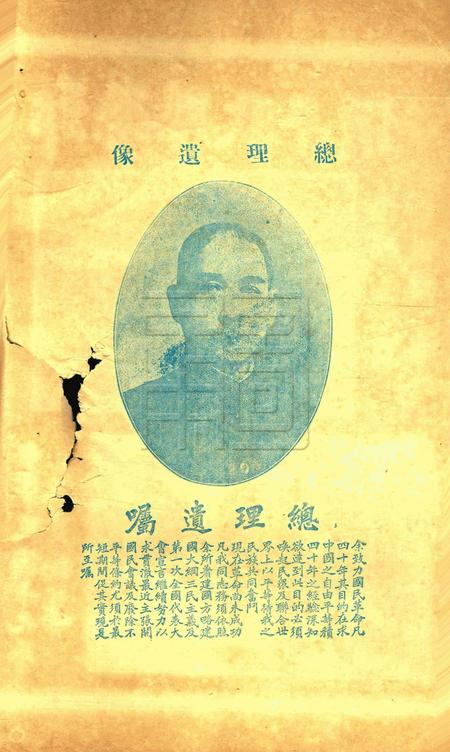 總理遺像
總理遺囑
余致力國民革命凡
四十年其目的在求
中國之自由平等積
四十年之經驗深知
欲達到此目的必須
喚起民眾及聯合世
界上以平等待我之
民族共同奮鬥
現在革命尚未成功
凡我同志務須依照
余所著建國方略建
國大綱三民主義及
第一次全國代表大
會宣言繼續努力以
求貫澈最近主張開
國民會議及廢除不
平等條約尤須於最
短期間促其實現是
所至囑